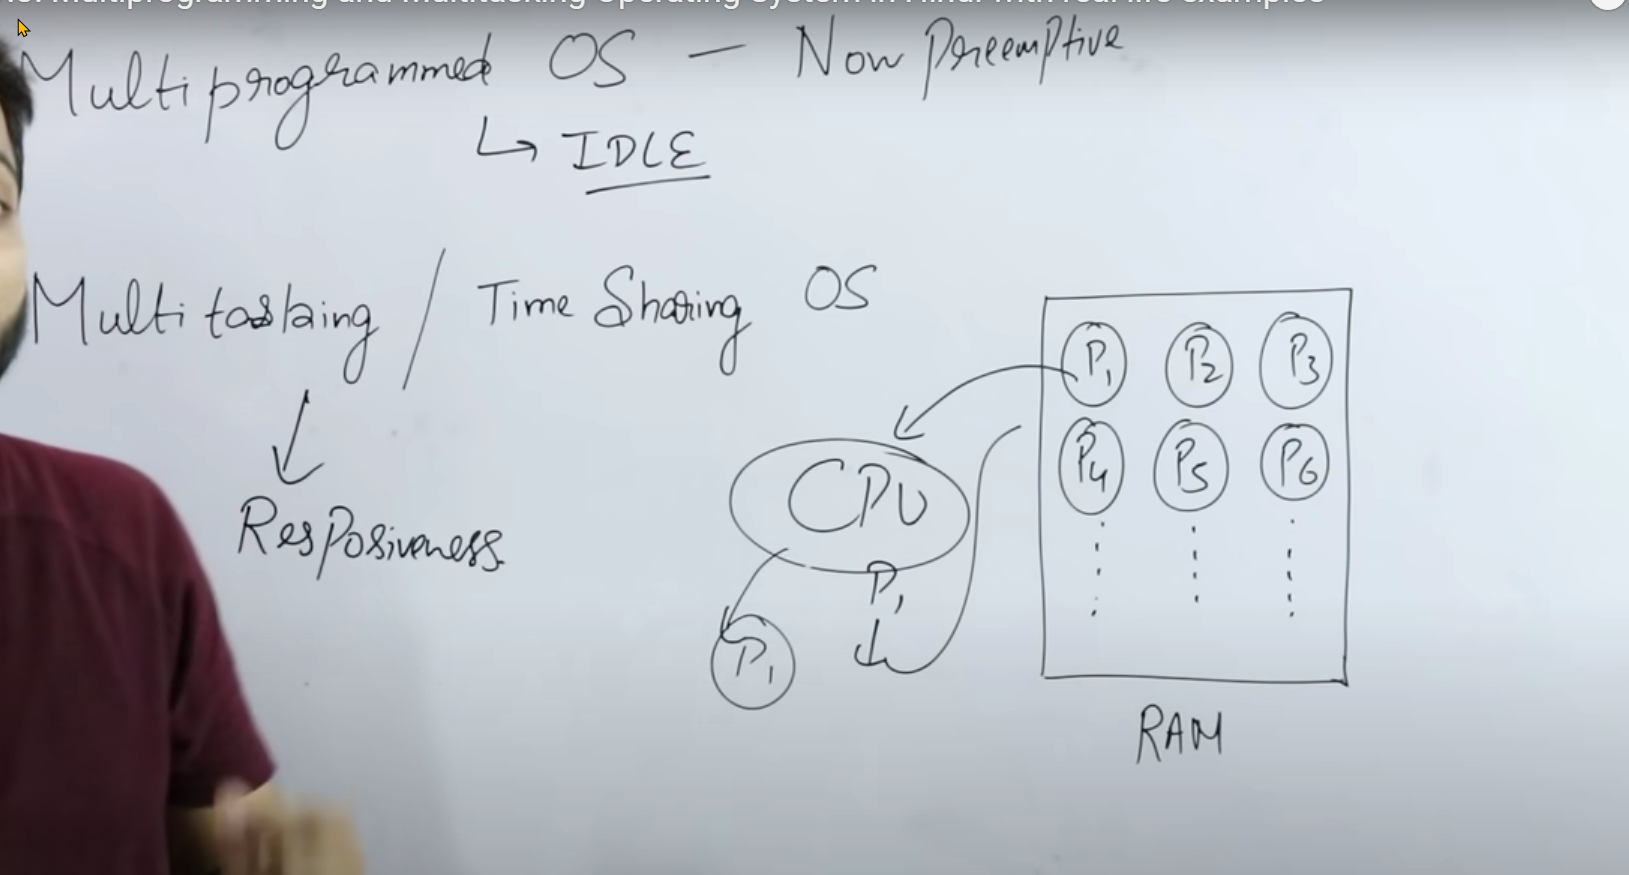 Multiprogramming and Multitasking Operating System in Hindi with real life examples
Multiprogrammed OS — Non Preemptive
↳ IDLE
Multitasking / Time Sharing OS
Resposiveness
P1 P2 P3
P4 P5 P6
CPU
P1
P1
RAM